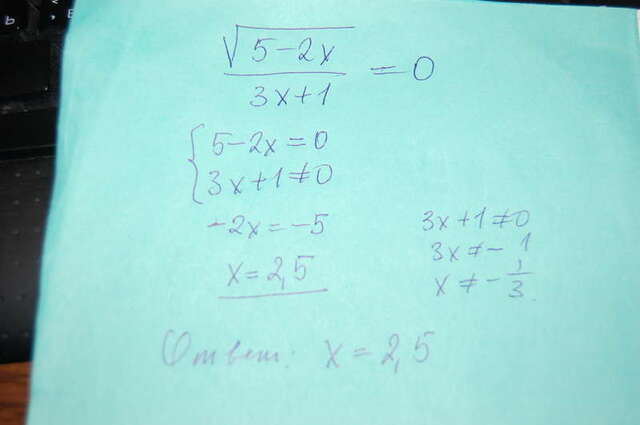 √5-2x / 3x+1 = 0
{ 5-2x=0
3x+1≠0
-2x=-5
x=2,5
3x+1≠0
3x≠-1
x≠-1/3
Ответ: x=2,5